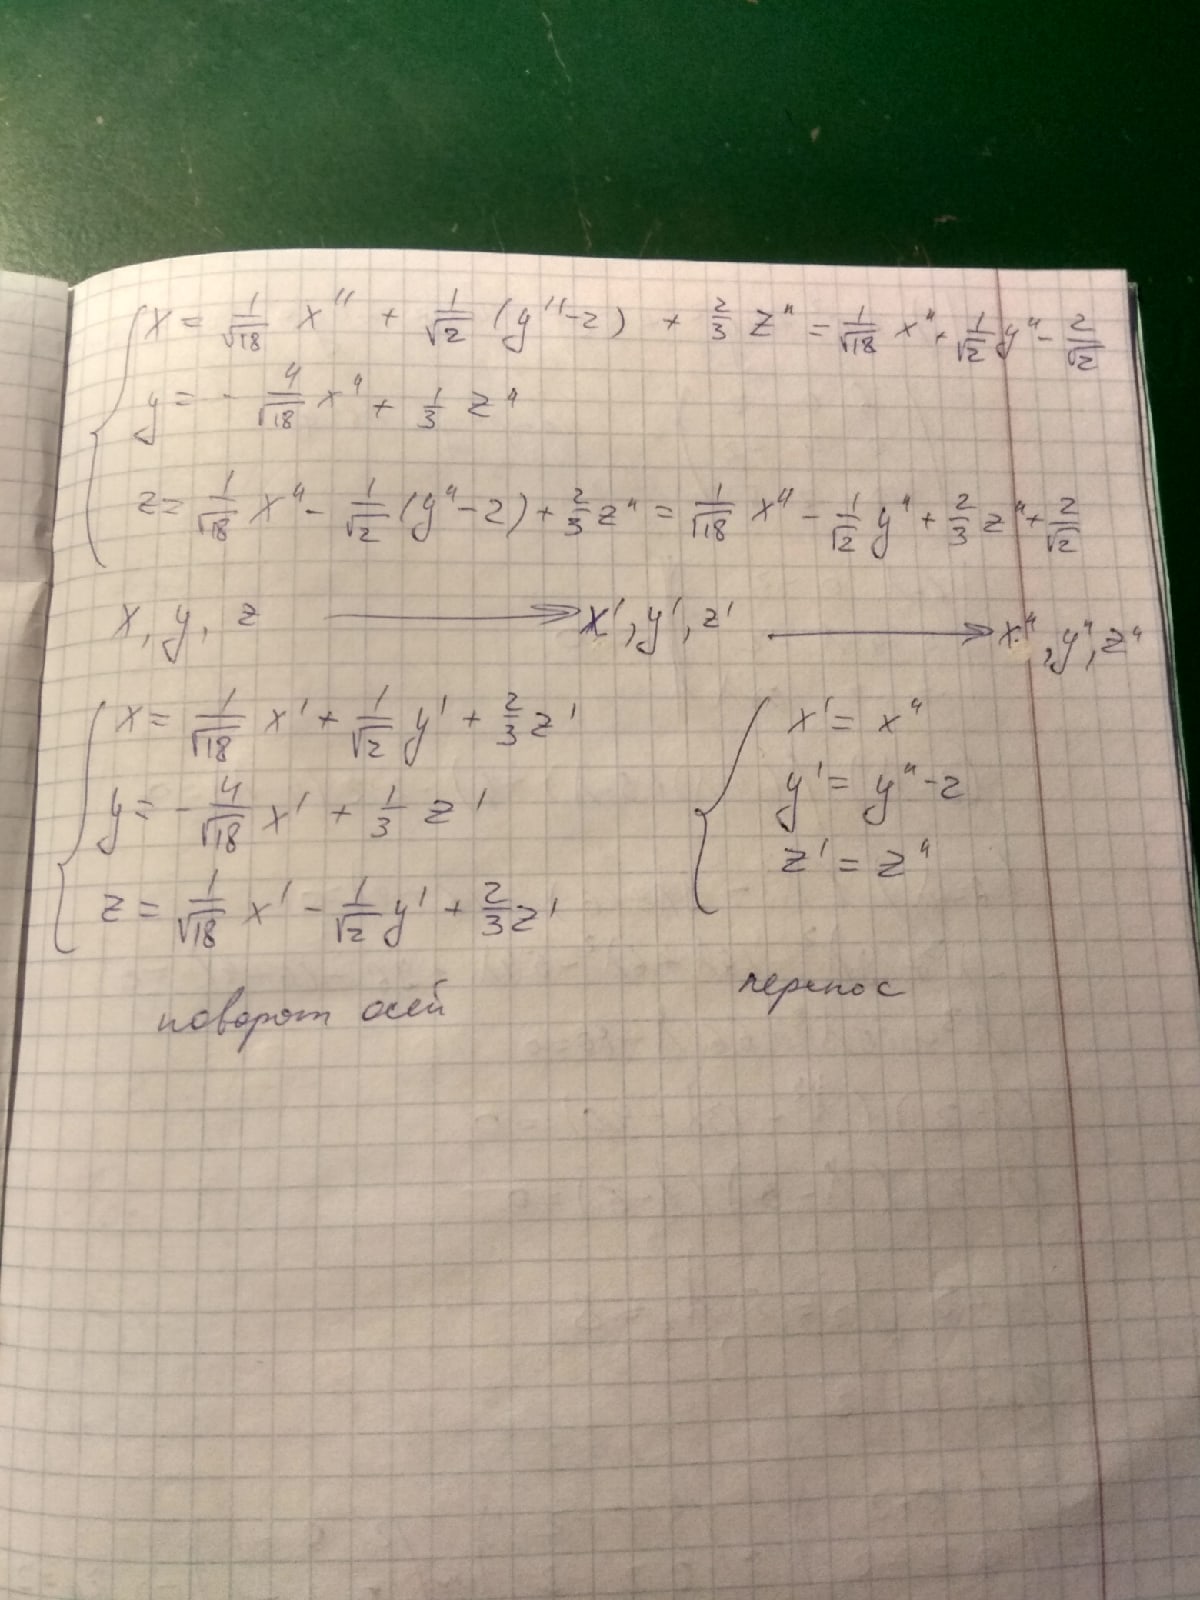 x = 1/√18 x'' + 1/√2 (y''-2) + 2/3 z'' = 1/√18 x'' + 1/√2 y'' - 2/√2
y = - 4/√18 x'' + 1/3 z''
z = 1/√18 x'' - 1/√2 (y''-2) + 2/3 z'' = 1/√18 x'' - 1/√2 y'' + 2/3 z'' + 2/√2
x, y, z → x', y', z' → x'', y'', z''
x = 1/√18 x' + 1/√2 y' + 2/3 z'
y = - 4/√18 x' + 1/3 z'
z = 1/√18 x' - 1/√2 y' + 2/3 z'
поворот осей
x' = x''
y' = y''-2
z' = z''
перенос